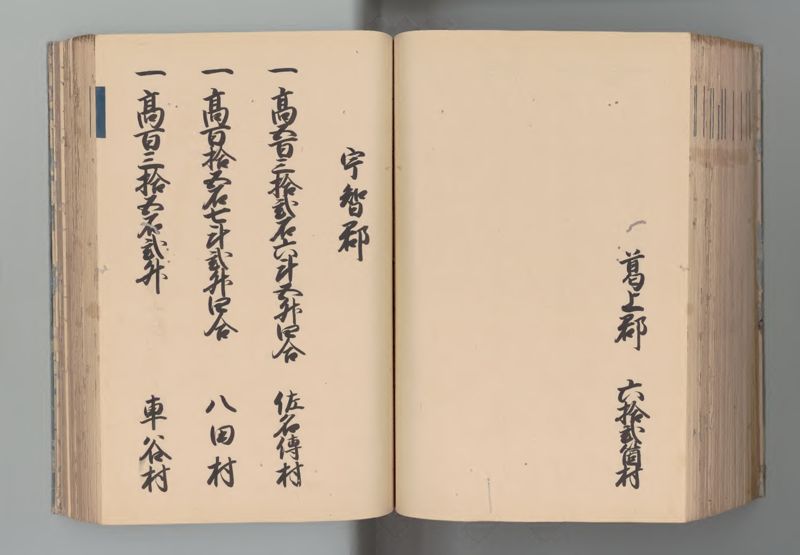 葛上郡 六拾弐箇村
宇智郡
一高五百三拾弐石六斗五升四合 佐名傳村
一高百拾五石七斗弐升四合 八田村
一高百三拾五石弐升 車谷村